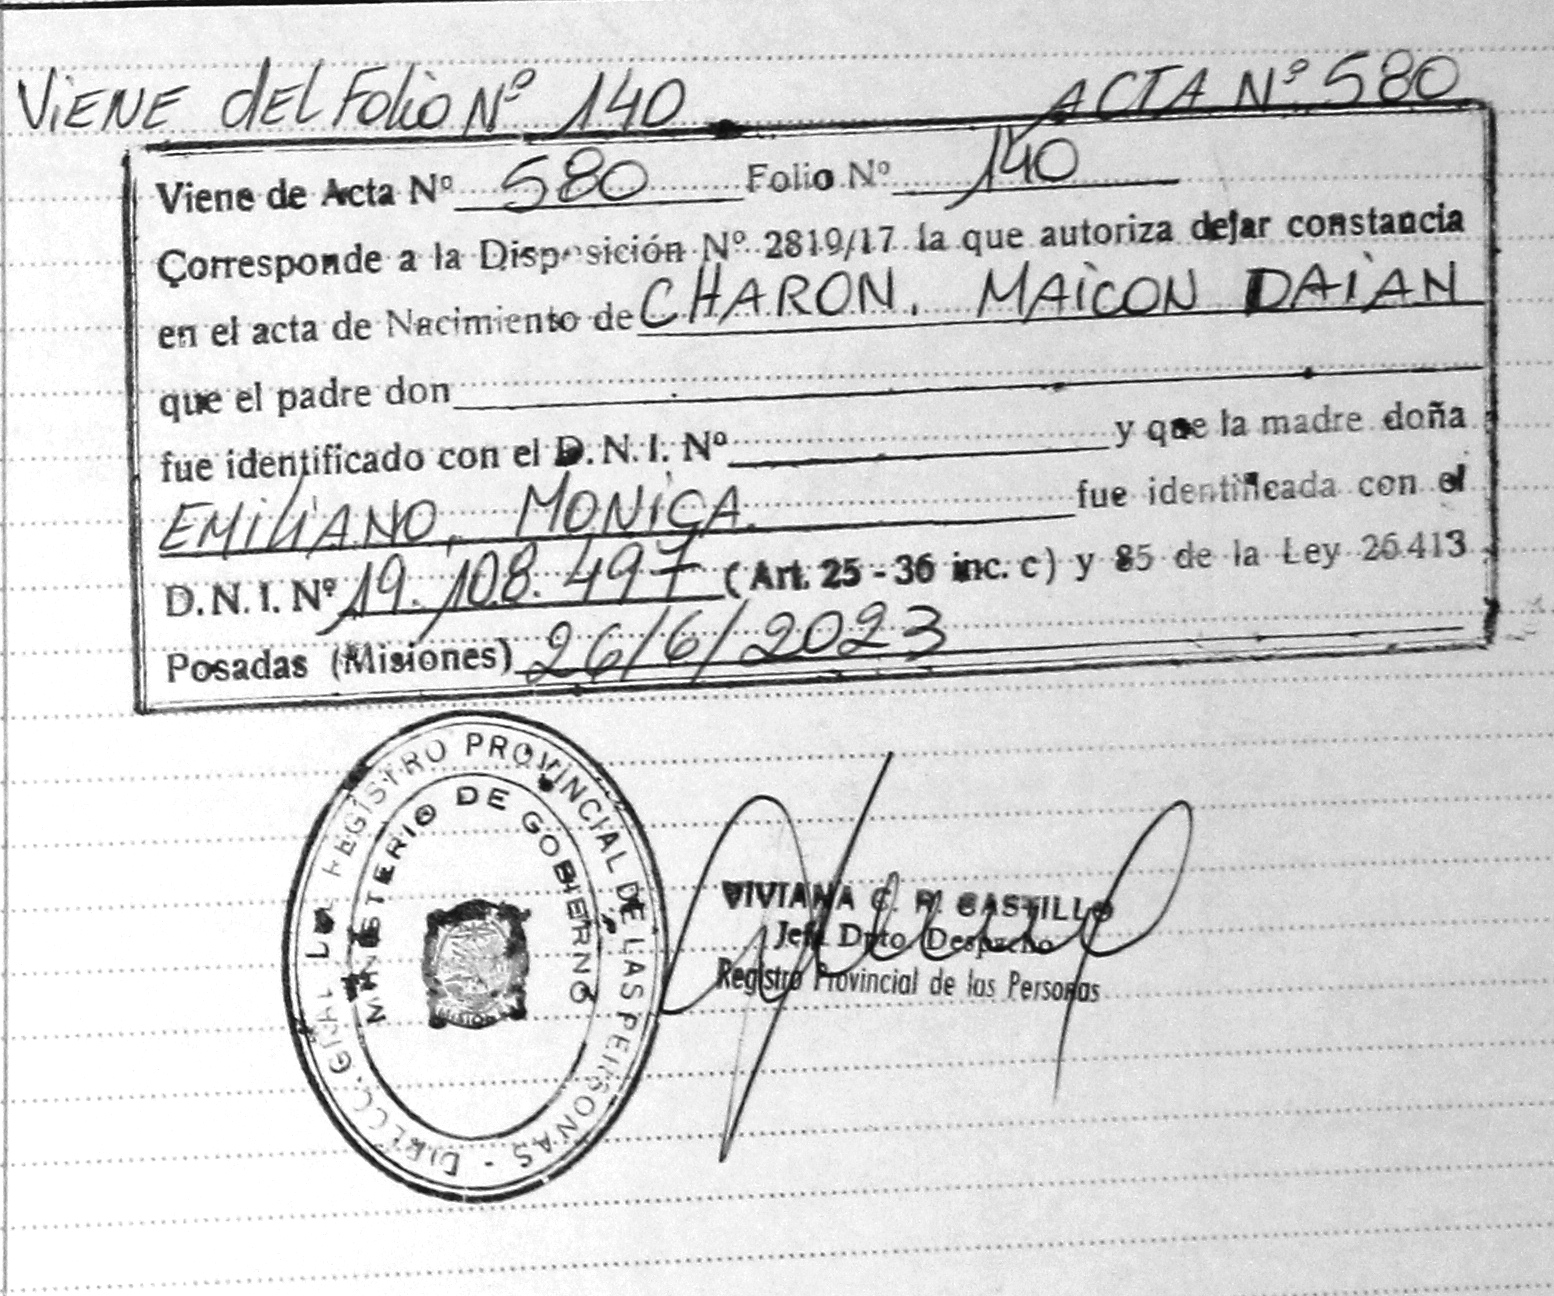 ViENE dEL Folio Nº 140 ACTA Nº 580
Viene de Acta Nº 580 Folio Nº 140
Corresponde a la Disposición Nº 2819/17 la que autoriza dejar constancia
en el acta de Nacimiento de CHARON, MAiCON DAiAN
que el padre don
fue identificado con el D.N.I. Nº y que la madre doña
EMiLiANO, MONiCA. fue identificada con el
D.N.I. Nº 19.108.497 (Art. 25 - 36 inc. c) y 85 de la Ley 26.413
Posadas (Misiones) 26/6/2023
DIRECC. GRAL DEL REGISTRO PROVINCIAL DE LAS PERSONAS -
MINISTERIO DE GOBIERNO
MISIONES
VIVIANA C. R. CASTILLO
Jefa Dpto Despacho
Registro Provincial de las Personas